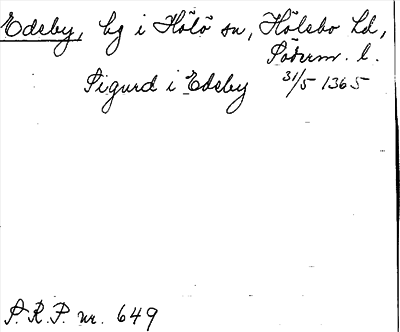 Edeby, by i Hölö sn, Hölebo hd,
Söderm. l.
Sigurd i Edeby 31/5 1365
S.R.P. nr. 649